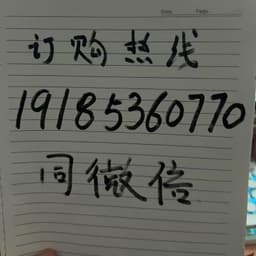 订购热线
19185360770
同微信